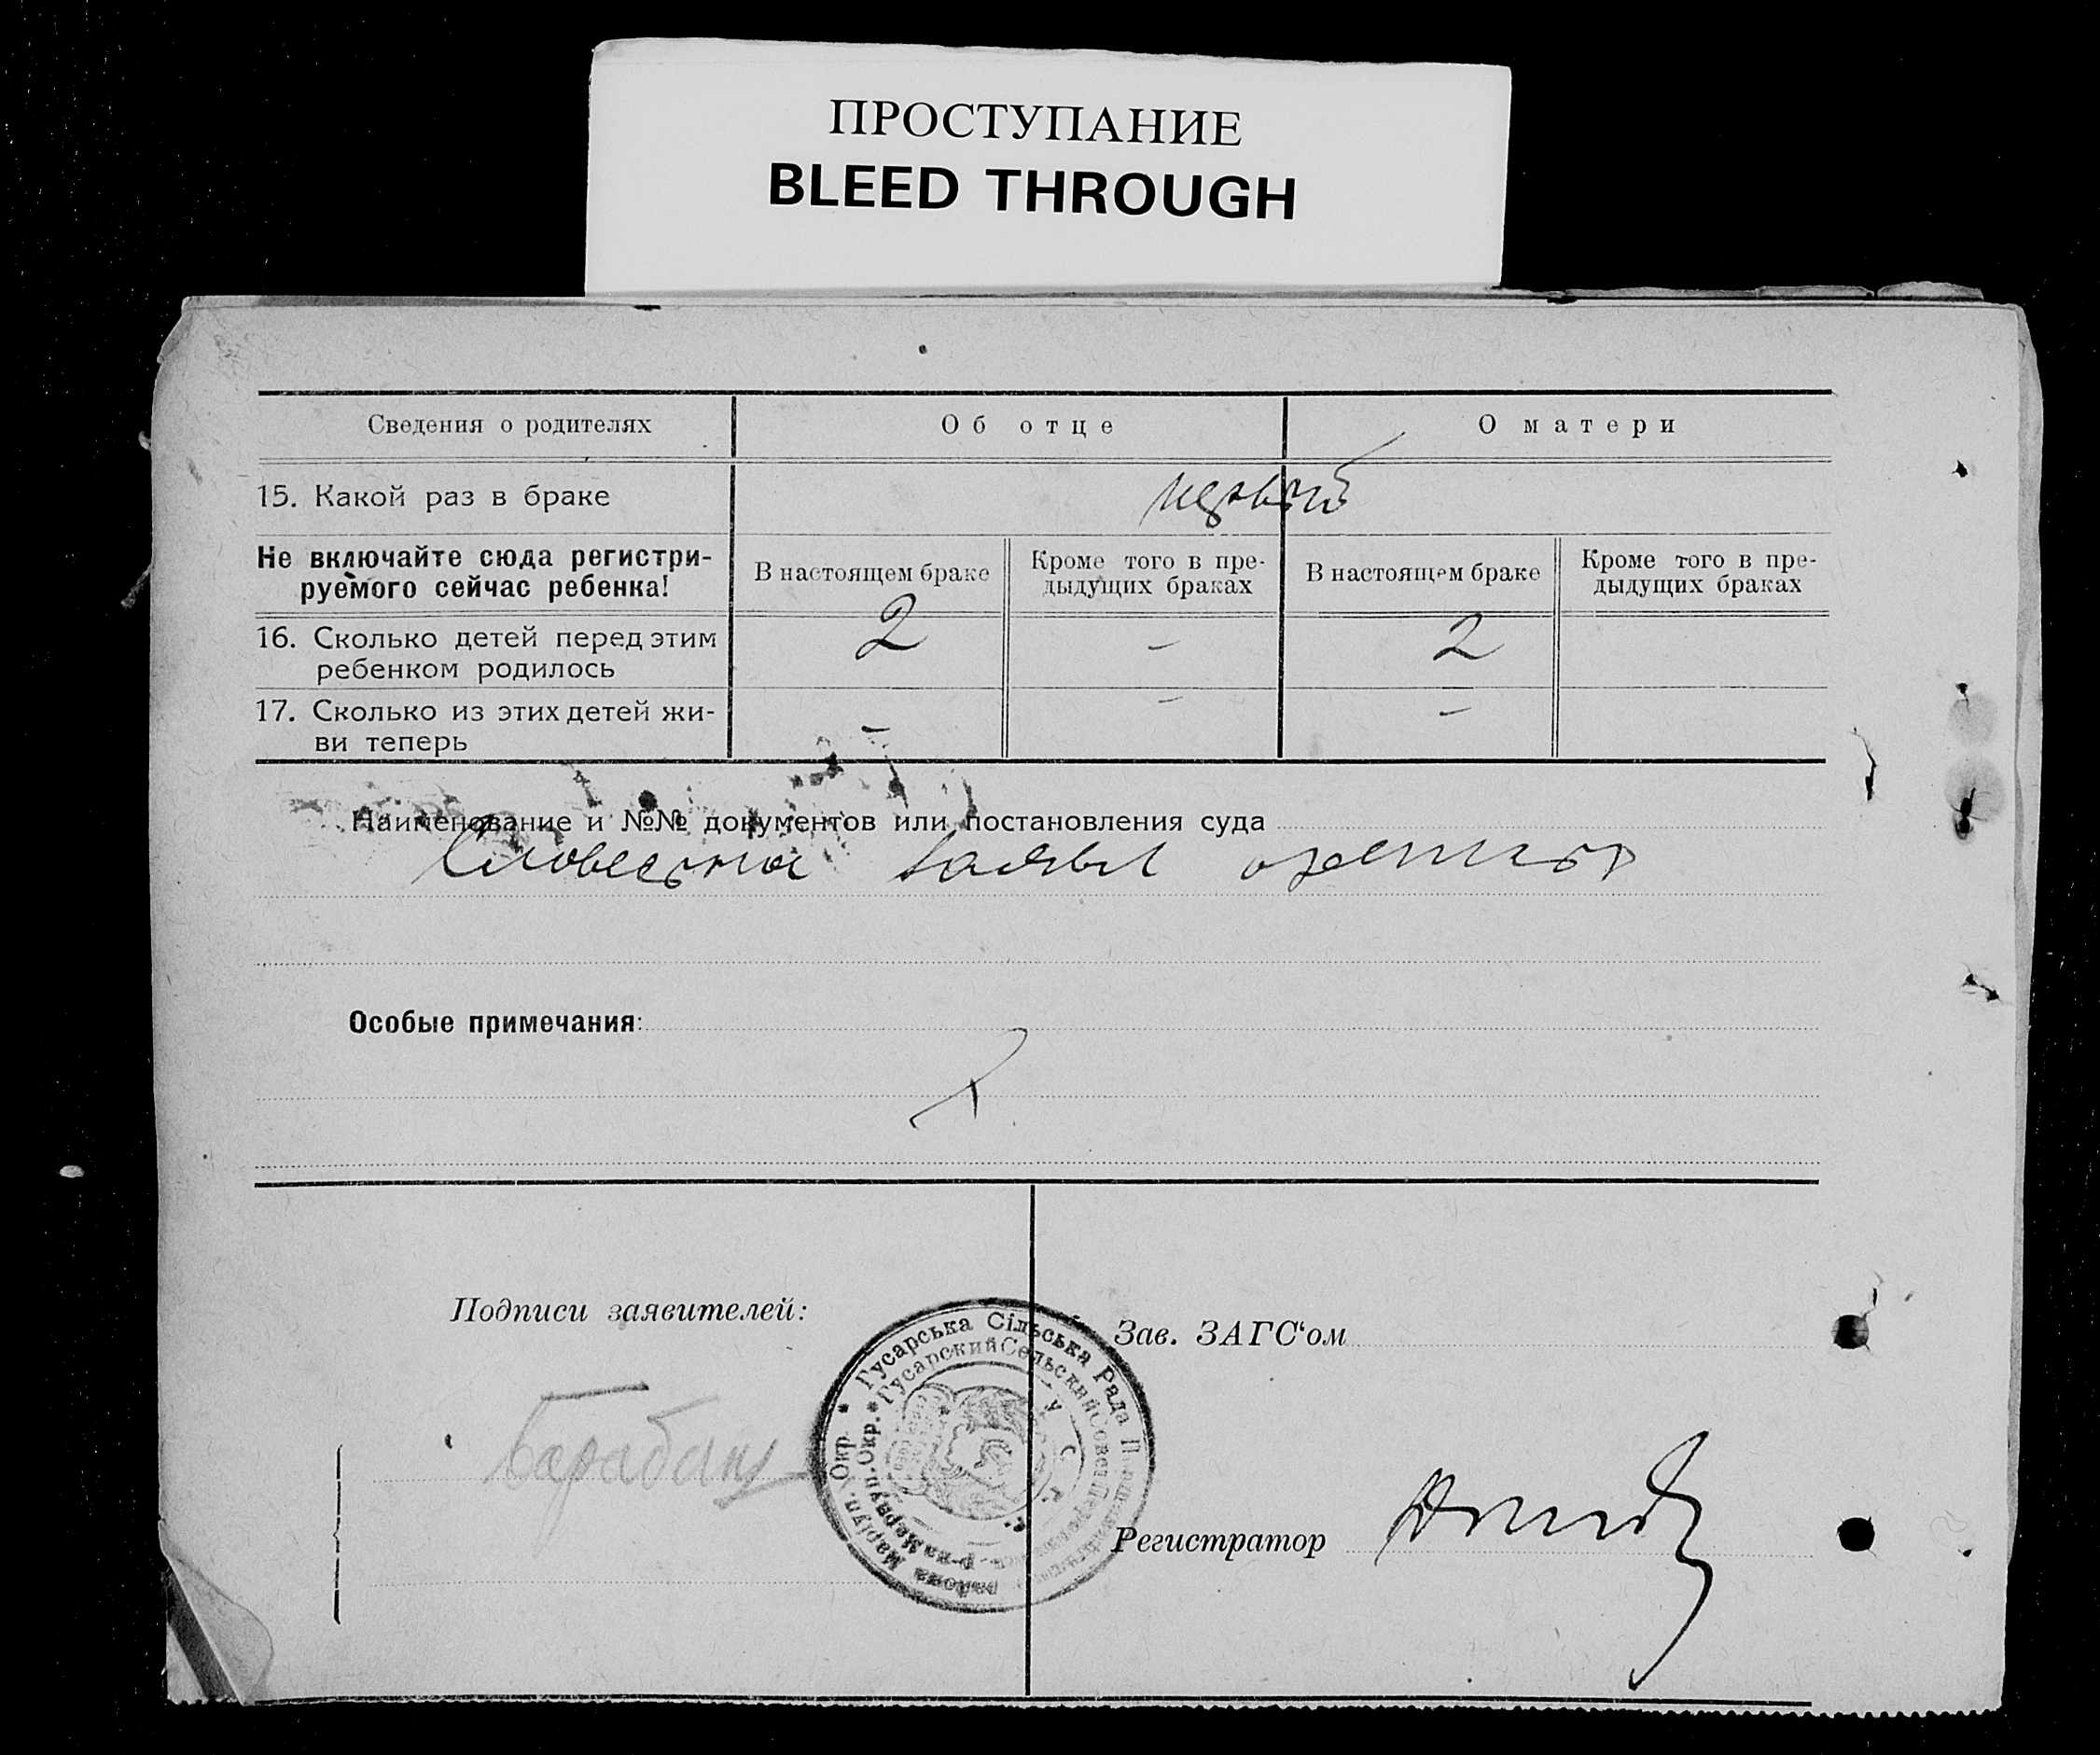 ПРОСТУПАНИЕ
BLEED THROUGH
Сведения о родителях
Об отце
О матери
15. Какой раз в браке
первый
Не включайте сюда регистри-
руемого сейчас ребенка!
В настоящем браке
Кроме того в пре-
дыдущих браках
В настоящем браке
Кроме того в пре-
дыдущих браках
16. Сколько детей перед этим
ребенком родилось
2
-
2
17. Сколько из этих детей жи-
ви теперь
-
-
-
Наименование и №№ документов или постановления суда
Словесна заявл
Особые примечания:
Подписи заявителей:
Зав. ЗАГС'ом
Гусарська Сільська Рада
Маріуп. Окр.
района
Гусарский Сельский Совет
р-на Мариуп. Окр.
У С
Барабаш
Регистратор